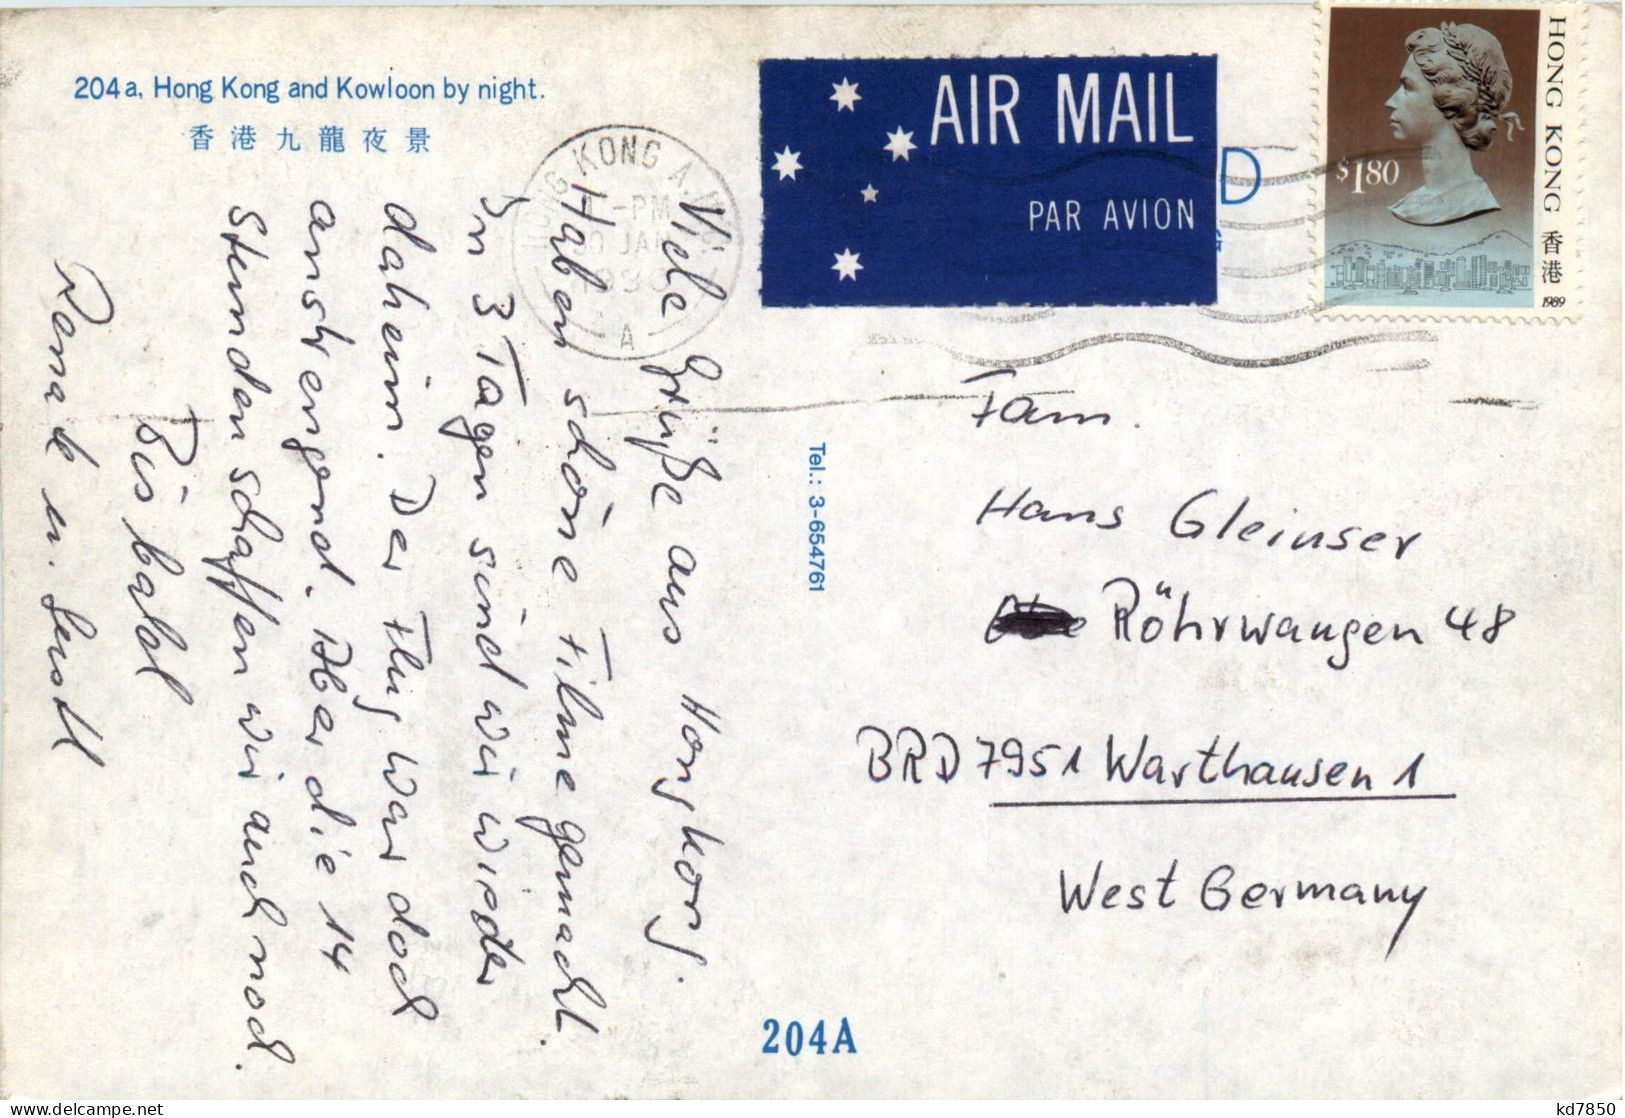 204a, Hong Kong and Kowloon by night.
香港九龍夜景
AIR MAIL
PAR AVION
D
HONG KONG 香港
$1.80
1989
HONG KONG
-PM
JAN
A
Viele Grüße aus Hongkong.
Haben schöne Filme gemacht.
In 3 Tagen sind wir wieder
daheim. Der Flug war doch
anstrengend. Aber die 14
Stunden schaffen wir auch noch.
Bis bald
Renate u.
Tel.: 3-654761
Fam.
Hans Gleinser
Röhrwangen 48
BRD 7951 Warthausen 1
West Germany
204A
kd7850